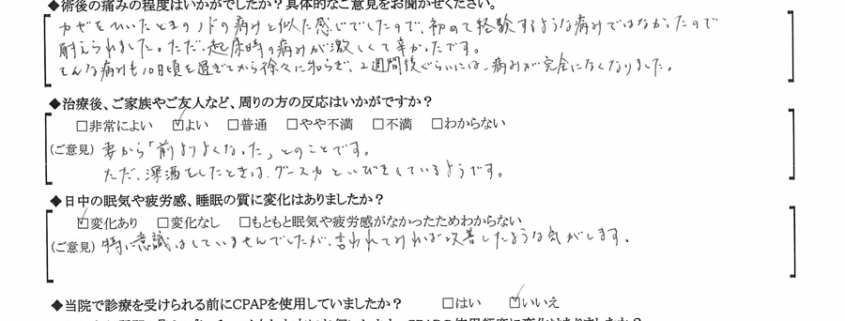 ◆術後の痛みの程度はいかがでしたか？具体的なご意見をお聞かせください。
カゼをひいたときのノドの痛みと似た感じでしたので、初めて経験するような痛みではなかったので
耐えられました。ただ、起床時の痛みが激しくて辛かったです。
そんな痛みも10日頃を過ぎてから徐々に和らぎ、2週間後ぐらいには、痛みが完全になくなりました。
◆治療後、ご家族やご友人など、周りの方の反応はいかがですか？
□非常によい ☑よい □普通 □やや不満 □不満 □わからない
(ご意見) 妻から「前よりよくなった」とのことです。
ただ、深酒をしたときは、グースカといびきをしているようです。
◆日中の眠気や疲労感、睡眠の質に変化はありましたか？
☑変化あり □変化なし □もともと眠気や疲労感がなかったためわからない
(ご意見) 特に意識はしていませんでしたが、言われてみれば改善したような気がします。
◆当院で診療を受けられる前にCPAPを使用していましたか？ □はい ☑いいえ